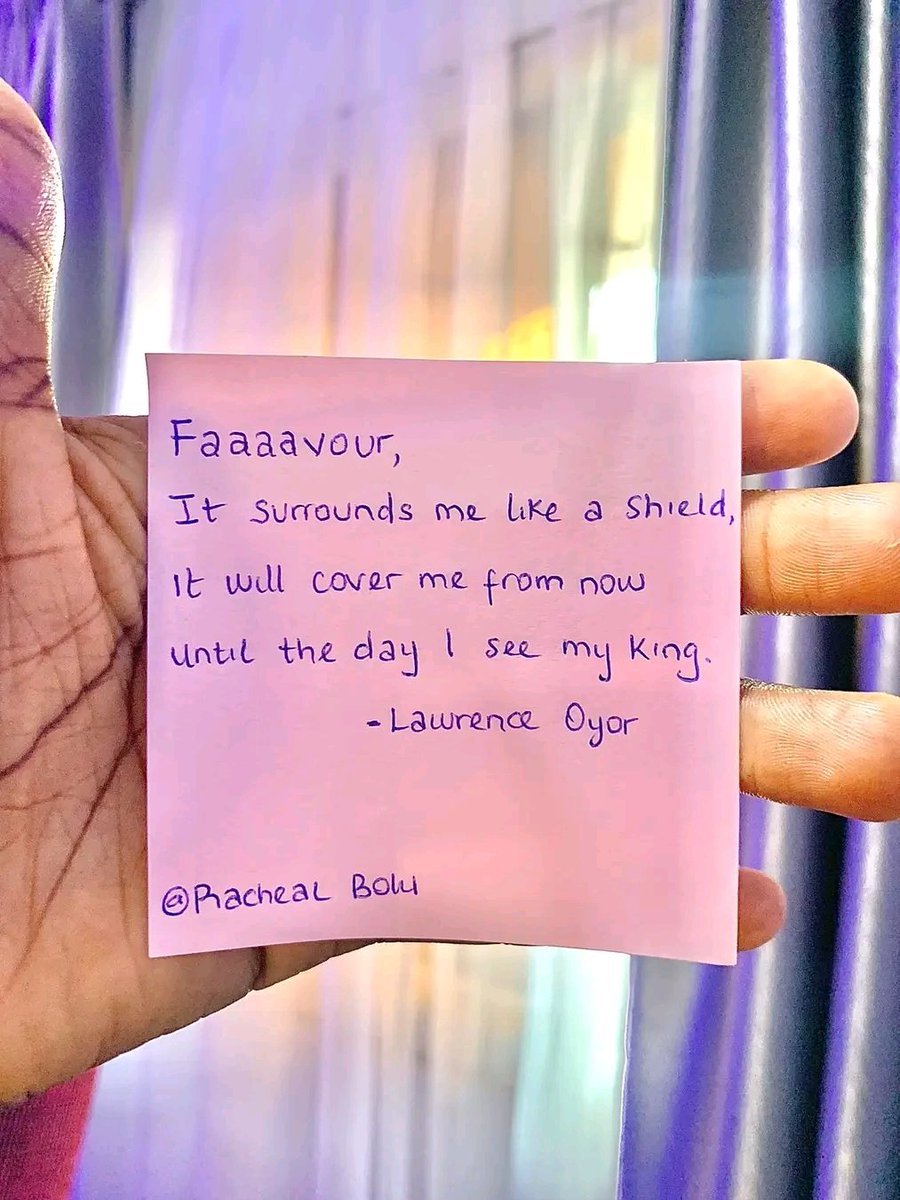 Faaaavour,
It surrounds me like a shield,
it will cover me from now
until the day I see my King.
-Lawrence Oyor
@Racheal Bolu